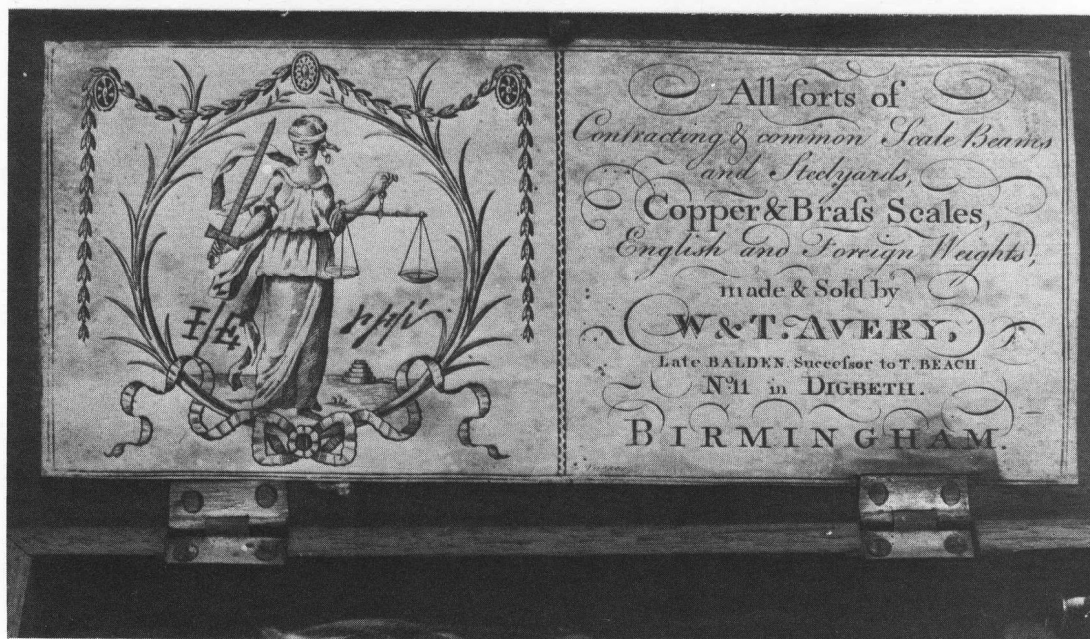 All ſorts of
Contracting & common Scale Beams
and Steelyards,
Copper & Braſs Scales,
Engliſh and Foreign Weights,
made & Sold by
W & T. AVERY,
Late BALDEN. Succeſsor to T. BEACH.
No. 11 in DIGBETH.
BIRMINGHAM.